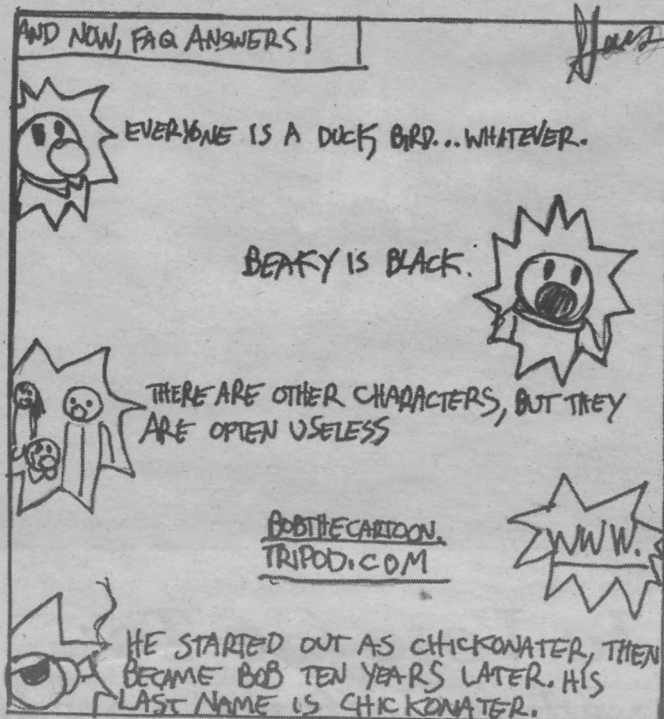 AND NOW, FAQ ANSWERS!
EVERYONE IS A DUCK, BIRD...WHATEVER.
BEAKY IS BLACK.
THERE ARE OTHER CHARACTERS, BUT THEY
ARE OFTEN USELESS
BOBTHECARTOON.
TRIPOD.COM
WWW.
HE STARTED OUT AS CHICKONATER, THEN
BECAME BOB TEN YEARS LATER. HIS
LAST NAME IS CHICKONATER.